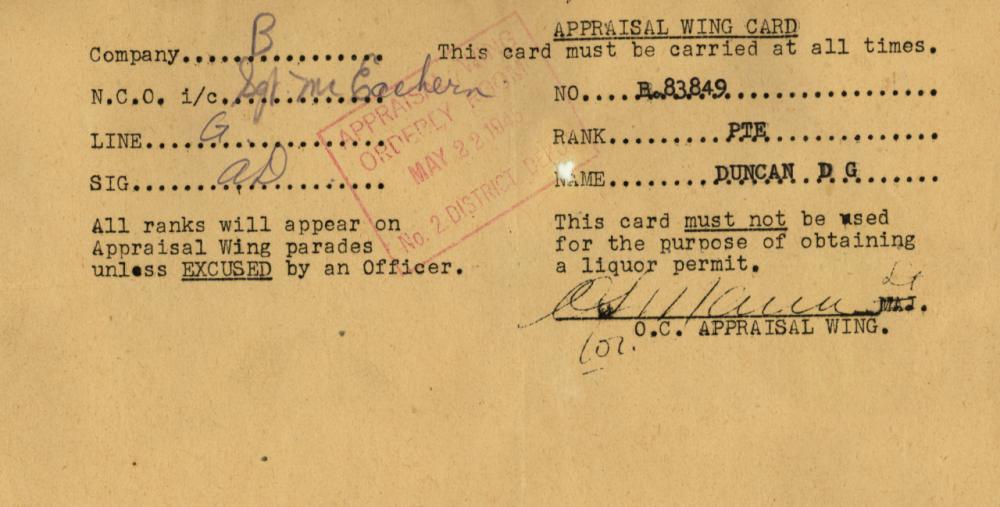 Company....B................
N.C.O. i/c.Sgt McEachern
LINE....G...................
SIG.......aD..........
All ranks will appear on
Appraisal Wing parades
unless EXCUSED by an Officer.
APPRAISAL WING
ORDERLY ROOM
MAY 22 194
No. 2 DISTRICT DEPOT
APPRAISAL WING CARD
This card must be carried at all times.
NO.....B.83849..................
RANK.........PTE..............
NAME.........DUNCAN..D G.......
This card must not be used
for the purpose of obtaining
a liquor permit.
Lt
MAJ.
O.C. APPRAISAL WING.
for.